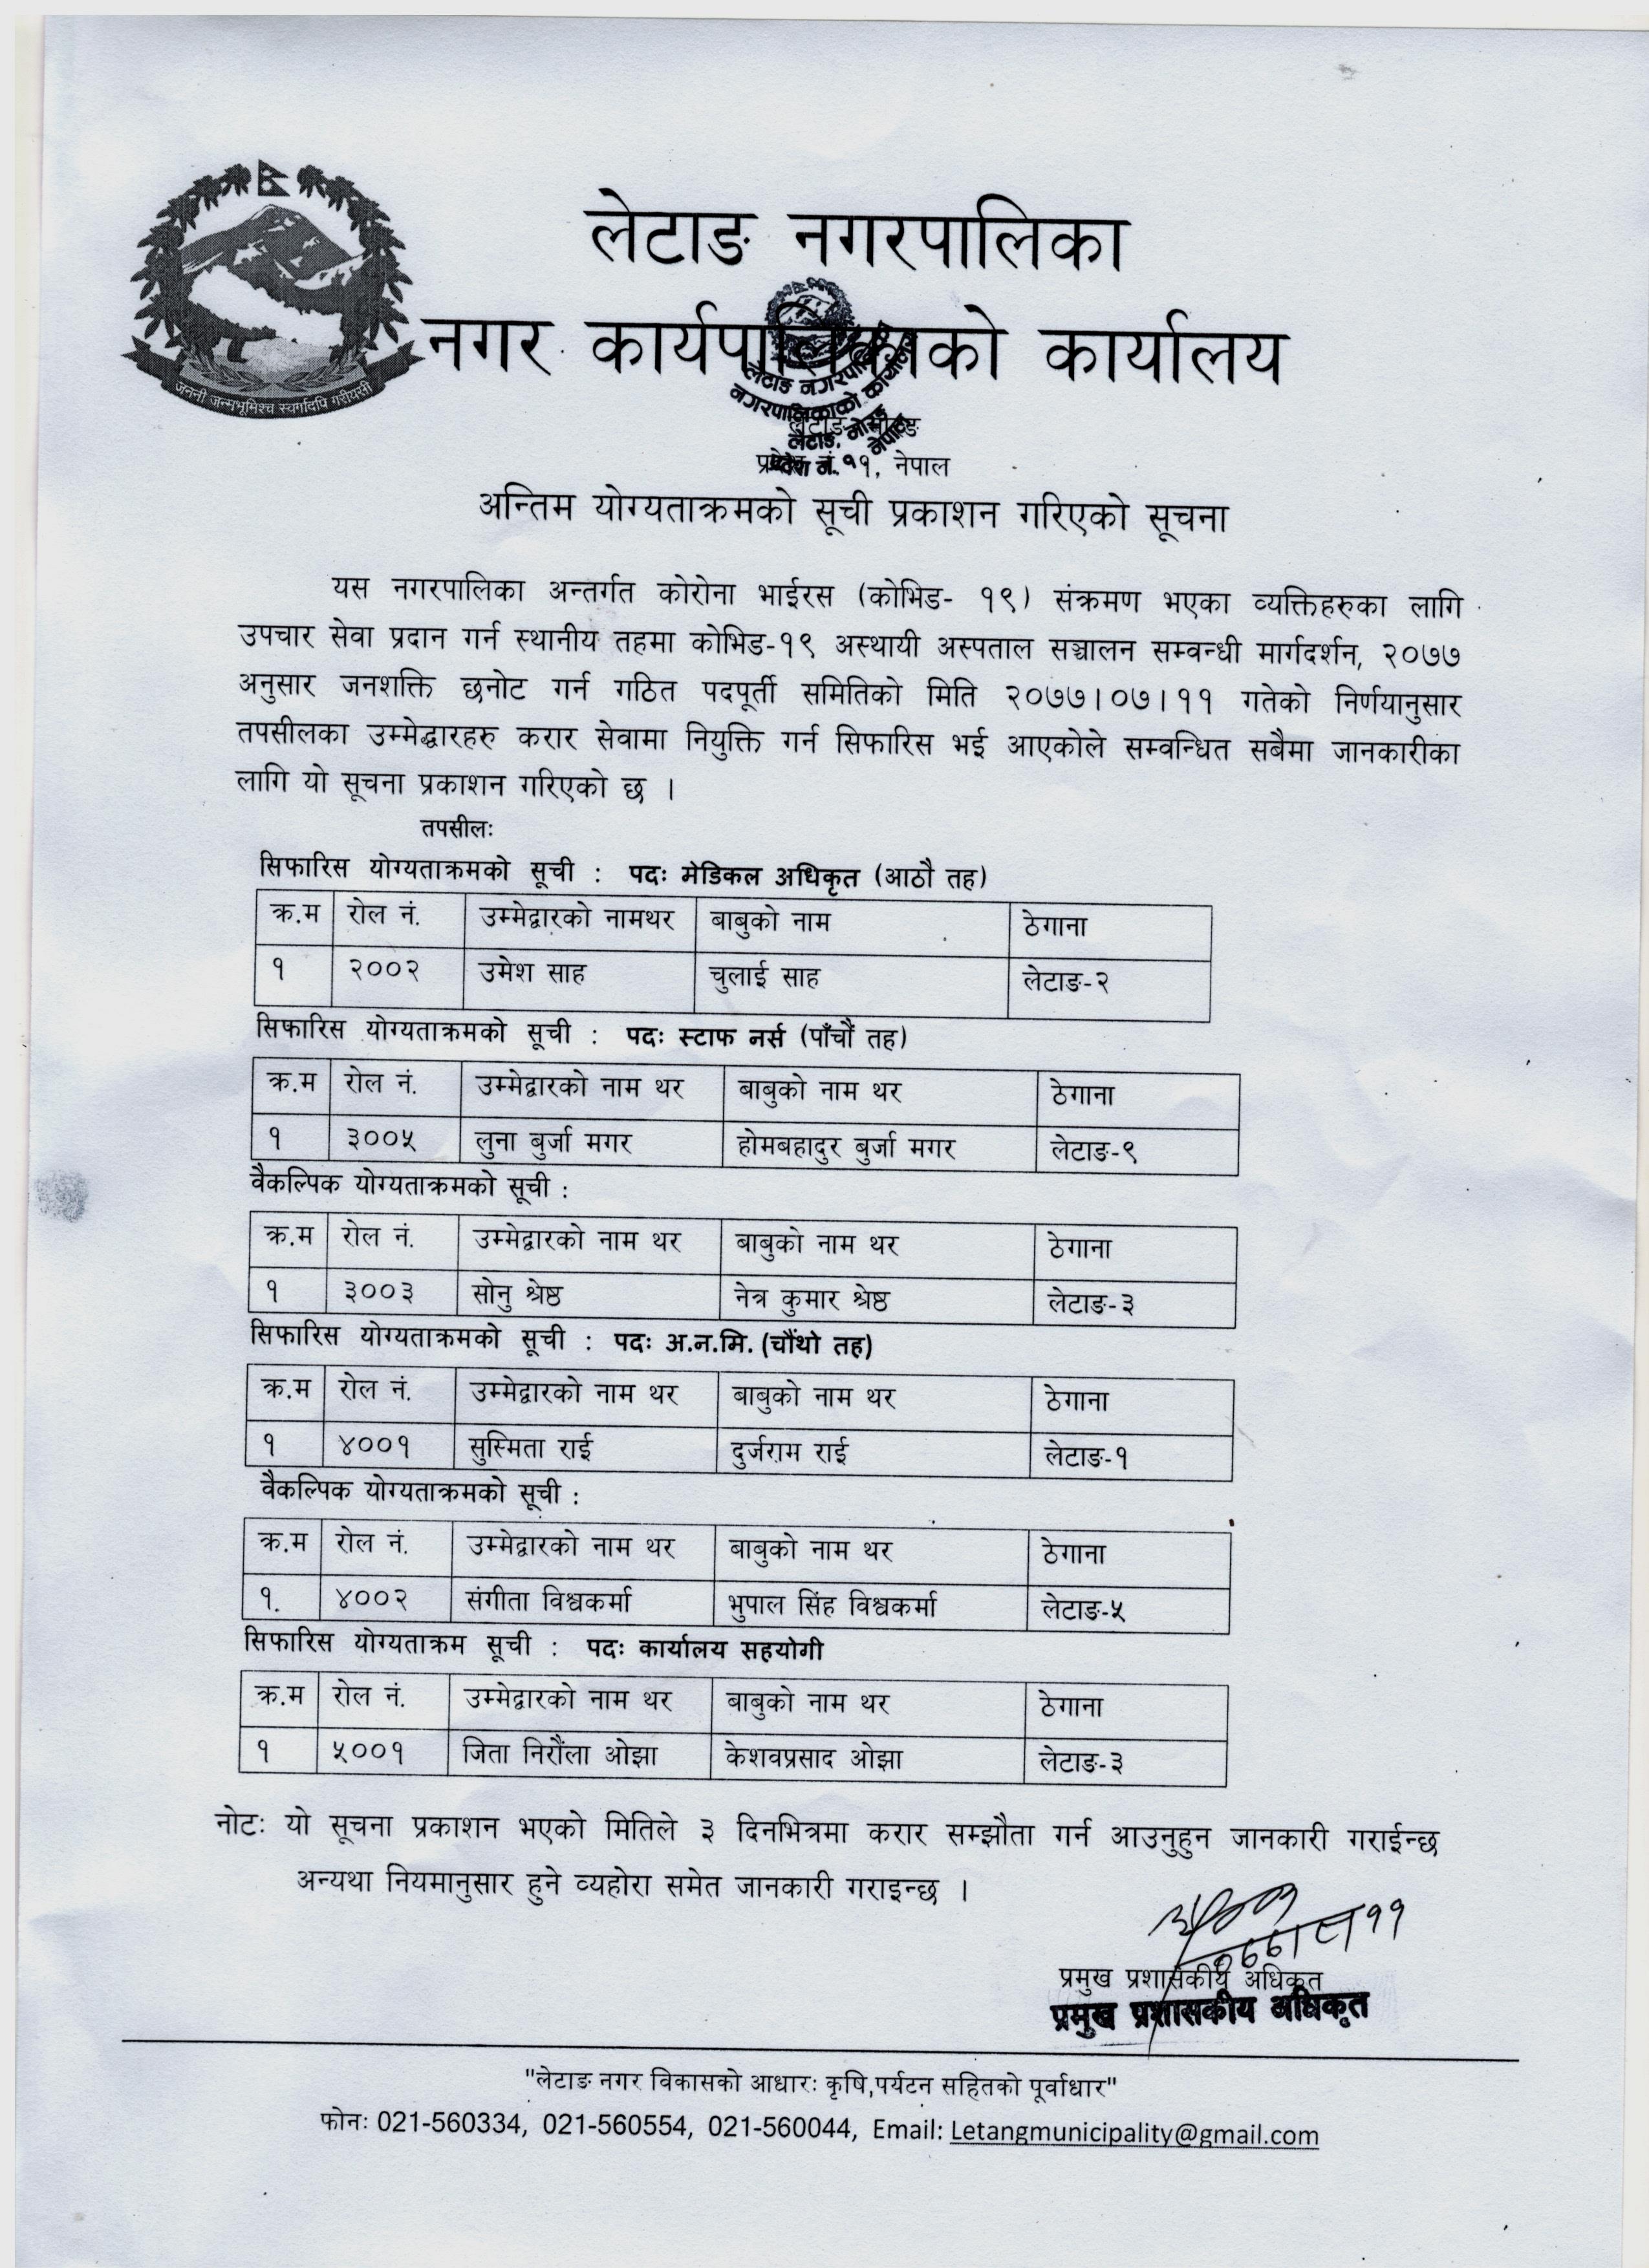 लेटाङ नगरपालिका
नगर कार्यपालिकाको कार्यालय
जननी जन्मभूमिश्च स्वर्गादपि गरीयसी
लेटाङ नगरपालिका
नगरपालिकाको कार्यालय
लेटाङ, मोरङ
नेपाल
प्रदेश नं. १
१, नेपाल
अन्तिम योग्यताक्रमको सूची प्रकाशन गरिएको सूचना
यस नगरपालिका अन्तर्गत कोरोना भाईरस (कोभिड- १९) संक्रमण भएका व्यक्तिहरुका लागि
उपचार सेवा प्रदान गर्न स्थानीय तहमा कोभिड-१९ अस्थायी अस्पताल सञ्चालन सम्वन्धी मार्गदर्शन, २०७७
अनुसार जनशक्ति छनोट गर्न गठित पदपूर्ती समितिको मिति २०७७।०७।११ गतेको निर्णयानुसार
तपसीलका उम्मेद्धारहरु करार सेवामा नियुक्ति गर्न सिफारिस भई आएकोले सम्वन्धित सबैमा जानकारीका
लागि यो सूचना प्रकाशन गरिएको छ ।
तपसीलः
सिफारिस योग्यताक्रमको सूची : पदः मेडिकल अधिकृत (आठौ तह)
क्र.म रोल नं. उम्मेद्वारको नामथर बाबुको नाम ठेगाना
१ २००२ उमेश साह चुलाई साह लेटाङ-२
सिफारिस योग्यताक्रमको सूची : पदः स्टाफ नर्स (पाँचौं तह)
क्र.म रोल नं. उम्मेद्वारको नाम थर बाबुको नाम थर ठेगाना
१ ३००५ लुना बुर्जा मगर होमबहादुर बुर्जा मगर लेटाङ-९
वैकल्पिक योग्यताक्रमको सूची :
क्र.म रोल नं. उम्मेद्वारको नाम थर बाबुको नाम थर ठेगाना
१ ३००३ सोनु श्रेष्ठ नेत्र कुमार श्रेष्ठ लेटाङ-३
सिफारिस योग्यताक्रमको सूची : पदः अ.न.मि. (चौंथो तह)
क्र.म रोल नं. उम्मेद्वारको नाम थर बाबुको नाम थर ठेगाना
१ ४००१ सुस्मिता राई दुर्जराम राई लेटाङ-१
वैकल्पिक योग्यताक्रमको सूची :
क्र.म रोल नं. उम्मेद्वारको नाम थर बाबुको नाम थर ठेगाना
१. ४००२ संगीता विश्वकर्मा भुपाल सिंह विश्वकर्मा लेटाङ-५
सिफारिस योग्यताक्रम सूची : पदः कार्यालय सहयोगी
क्र.म रोल नं. उम्मेद्वारको नाम थर बाबुको नाम थर ठेगाना
१ ५००१ जिता निरौंला ओझा केशवप्रसाद ओझा लेटाङ-३
नोटः यो सूचना प्रकाशन भएको मितिले ३ दिनभित्रमा करार सम्झौता गर्न आउनुहुन जानकारी गराईन्छ
अन्यथा नियमानुसार हुने व्यहोरा समेत जानकारी गराइन्छ ।
प्रमुख प्रशासकीय अधिकृत
प्रमुख प्रशासकीय अधिकृत
"लेटाङ नगर विकासको आधारः कृषि,पर्यटन सहितको पूर्वाधार"
फोनः 021-560334, 021-560554, 021-560044, Email: Letangmunicipality@gmail.com